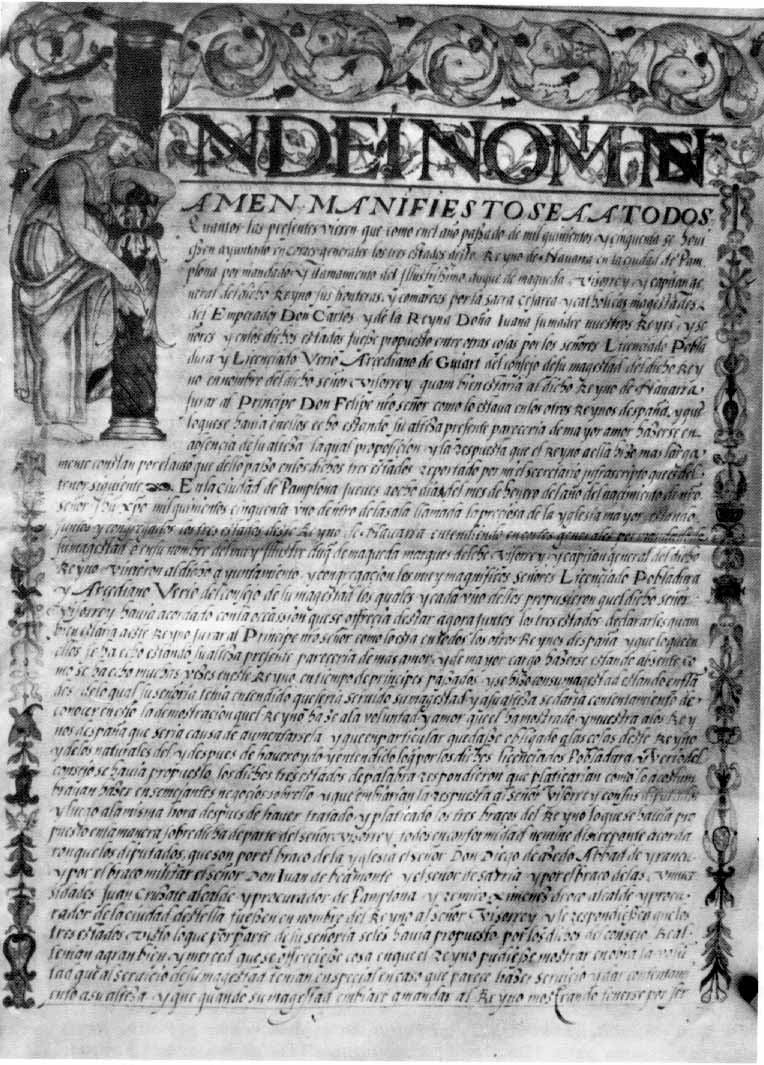 IN DEI NOMIN
AMEN. MANIFIESTO SEA A TODOS
Quantos las presentes vieren que como en el año passado de mil quinientos y cinquenta se hovi
essen ayuntado en cortes generales los tres estados deste Reyno de Navarra en la ciudad de Pam
plona por mandado y llamamiento del Illustrissimo duque de maqueda Visorrey y capitan ge
neral del dicho Reyno sus fronteras y comarcas por la sacra cesarea y catholicas magestades
del Emperador Don Carlos y de la Reyna Doña Iuana su madre nuestros Reyes y se
ñores y en los dichos estados fuesse propuesto entre otras cosas por los señores Licenciado Pobla
dura y Licenciado Verio Arcediano de del consejo de su magestad del dicho Rey
no en nombre del dicho señor Visorrey quam bien estaria al dicho Reyno de Navarra
jurar al Principe Don Felipe nro señor como lo estava en los otros Reynos despaña, y que
lo que se havia en ellos echo estando su alteza presente pareceria de mayor amor hazerse en
absencia de su alteza la qual proposicion y la respuesta que el Reyno a ella hizo mas larga
mente constan por el auto que dello passo en los dichos tres estados reportado por mi el secretario infrascripto que es del
tenor siguiente En la ciudad de Pamplona jueves a ocho dias del mes de henero del año del nacimiento de nro
señor Jhu Xpo mil quinientos cinquenta uno dentro de la sala llamada la preciosa de la yglesia mayor estando
juntos y congregados los tres estados deste Reyno de Navarra entendiendo en cortes generales por mandado de
su magestad o en su nombre del muy Illustre duq de maqueda marques delche Visorrey y capitan general del dicho
Reyno Vinieron al dicho ayuntamiento y congregacion los muy magnificos señores Licenciado Pobladura
y Arcediano Verio del consejo de su magestad los quales y cada uno dellos propusieron quel dicho señor
Visorrey havia acordado con la occassion que se ofrecia destar agora juntos los tres estados declararles quam
bien estaria a este Reyno jurar al Principe nro señor como lo esta en todos los otros Reynos despaña y que lo que en
ellos se ha echo estando su alteza presente pareceria de mas amor y de mayor cargo hazerse estando absente co
mo se ha echo muchas vezes en este Reyno en tiempo de principes passados y se hizo con su magestad estando en flā
des de lo qual su señoria tenia entendido que seria servido su magestad y a su alteza se daria contentamiento de
conocer en esto la demostracion quel Reyno haze a la voluntad y amor que el ha mostrado y muestra a los Rey
nos despaña que seria causa de aumentarsela y que en particular quedasse obligado a las cosas deste Reyno
y de los naturales del y despues de haver oydo y entendido lo q por los dichos licenciados Pobladura y Verio del
consejo se havia propuesto los dichos tres estados de palabra respondieron que platicarian como lo acostum
brayan hazer en semejantes negocios sobrello y que embiarian la respuesta al señor Visorrey con sus diputados
y luego a la misma hora despues de haver tratado y platicado los tres braços del Reyno lo que se havia pro
puesto en la manera sobredicha de parte del señor Visorrey todos en conformidad nemine discrepante acorda
ron que los diputados, que son por el braco de la yglesia el señor Don Diego
y por el braco militar el señor Don Iuan de beamonte y el señor de sarria y por el braco de las Univer
sidades Iuan Cruzate alcalde y procurador de Pamplona y remiro Ximenes alcalde y procu
rador de la ciudad destella fuessen en nombre del Reyno al señor Visorrey y le respondiessen que los
tres estados Visto lo que por parte de su señoria se les havia propuesto por los dichos de consejo Real
tenian a gran bien y merced que se ofreciesse cosa en que el Reyno pudiesse mostrar en obra la volun
tad que al servicio de su magestad tenian en special en caso que parece hazer servicio y dar contentam
iento a su alteza y que quando su magestad embiare a mandar al Reyno mostrando tenerse por ser